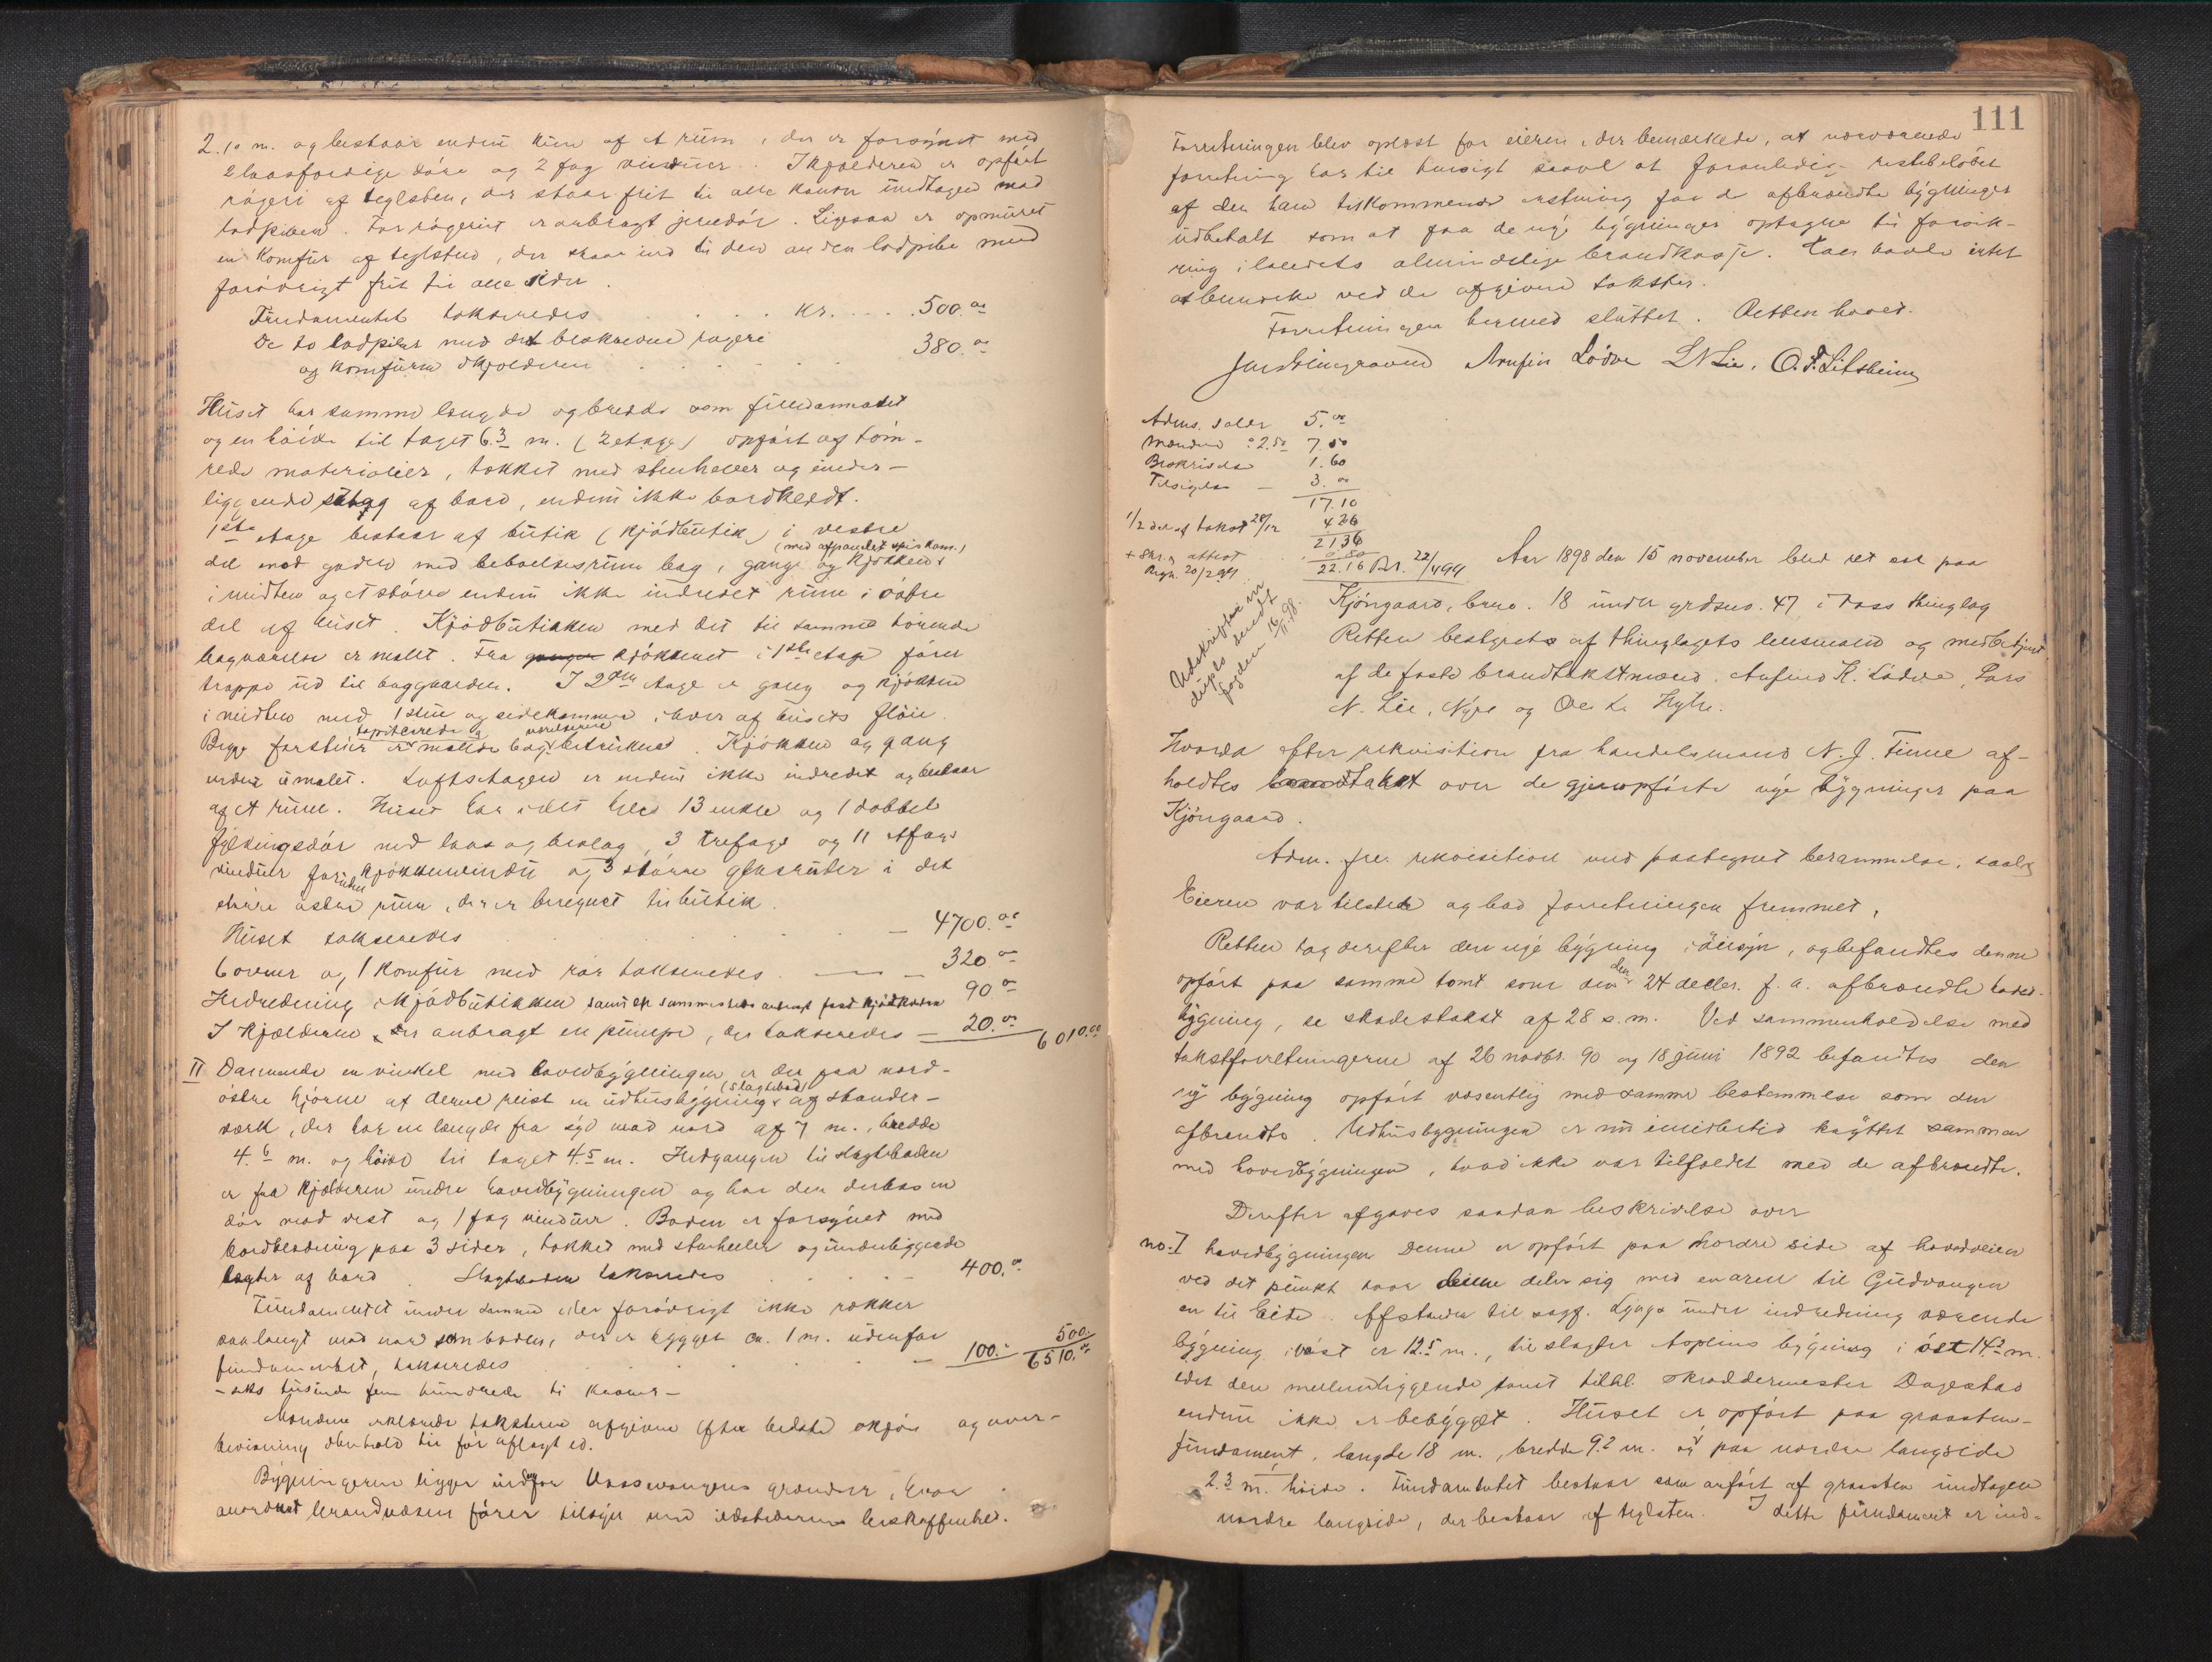 2.10 m. og bestaar endnu kun af et rum, der er forsynet med
2 laasfærdige døre og 2 fag vinduer. I kjælderen er opført
røgeri af teglsten, der staar frit til alle kanter undtagen mod
lodpiben. For røgeriet er anbragt jerndør. Ligesaa er opmuret
en komfur af teglsten, der staar ind til den anden lodpibe med
forøvrigt frit til alle sider.
Fundamentet takseredes kr. 500.00
De to lodpiber med det beskrevne røgeri
og komfuren i kjælderen 380.00
Huset har samme længde og bredde som fundamentet
og en høide til taget 6.3 m. (2 etage) opført af tøm-
rede materialier, tækket med stenheller og under-
liggende af bord, endnu ikke bordklædt.
1ste etage bestaar af butik (kjødbutik) i vestre
del mod gaden med beboelsesrum bag, gange og kjøkken
(med afpanelet spiskam.)
i midten og et større endnu ikke indredet rum i østre
del af huset. Kjødbutikken med det til samme hørende
bagværelse er malet. Fra kjøkkenet i 1ste etage fører
trappe ud til baggaarden. I 2den etage er gang og kjøkken
i midten med 1 stue og sidekammer i hver af husets fløie.
Begge forstuer er tapiserede og malede bag værelserne betrukne. Kjøkken og gang
endnu umalet. Loftsetagen er endnu ikke indredet og bestaar
af et rum. Huset har i det hele 13 enkle og 1 dobbel
fyldingsdør med laas og beslag, 3 trefags og 11 tofags
vinduer foruden kjøkkenvindu og 3 større glasruter i det
større østre rum, der er beregnet til butik.
Huset takseredes 4700.00
6 ovner og 1 komfur med rør takseredes 320.00
Indredning i kjødbutikken samt en sammesteds anbragt fast kjødkasse 90.00
I kjælderen er anbragt en pumpe, der takseredes 20.00 6010.00
II Dannende en vinkel med hovedbygningen er der paa nord-
østre hjørne af denne reist en udhusbygning (slagtebod) af stander-
værk, der har en længde fra syd mod nord af 7 m., bredde
4.6 m. og høide til taget 4.5 m. Indgangen til slagteboden
er fra kjælderen under hovedbygningen og har den desuden en
dør mod vest og 1 fag vinduer. Boden er forsynet med
bordklædning paa 3 sider, tækket med stenheller og underliggende
lægter af bord. Slagteboden takseredes 400.00
Fundamentet under samme der forøvrigt ikke rækker
saa langt mod nord som boden, der er bygget ca. 1 m. udenfor
fundamentet, takseredes 100.- 500.-
6510.00
- seks tusinde fem hundrede ti kroner -
Mændene erklærede taksterne afgivne efter bedste skjøn og over-
bevisning i henhold til før aflagt ed.
Bygningerne ligger indenfor Vossevangens grændser, hvor
anordnet brandvæsen fører tilsyn med ildstedernes beskaffenhed.
111
Forretningen blev oplæst for eieren, der bemærkede, at nærværende
forretning har til hensigt saavel at foranledige restebeløbet
af den ham tilkommende erstatning for de afbrændte bygninger
udbetalt som at faa de nye bygninger optagne til forsik-
ring i landets almindelige brandkasse. Han havde intet
at bemærke ved de afgivne takster.
Forretningen hermed sluttet. Retten hævet.
Anfin Lødve L N Lie, O. T. Litsheim
Adms. salær 5.00
Mændene à 2.50 7.50
Beskrivelse 1.60
Tilsigelse 3.00
17.10
1/2 del af takst 28/12 4 26
21 36
+ Skr. attest 0.80
22.16
Udskriften in
duplo sendt
fogden 16/11.98.
Aar 1898 den 15 november blev ret sat paa
Kjøngaard, brno. 18 under grdsno. 47 i Voss thinglag
Retten bestyrets af thinglagets lensmand og medbetjent
af de faste brandtakstmænd. Anfind K. Lødve, Lars
N. Lie, Nyre og Ole L. Hylle.
Hvorda efter rekvisition fra handelsmand N. J. Finne af-
holdtes takst over de gjenopførte nye bygninger paa
Kjøngaard.
Adm. frem. rekvisition med paategnet berammelse, saal.
Eieren var tilstede og bad forretningen fremmet,
Retten tog derefter den nye bygning i øiesyn, og befandtes denne
opført paa samme tomt som den den 24 decbr. f. a. afbrændte hoved-
bygning, se skadestakst af 28 s. m. Ved sammenholdelse med
takstforretningerne af 26 novbr. 90 og 18 juni 1892 befandtes den
ny bygning opført væsentlig med samme bestemmelse som den
afbrændte. Udhusbygningen er nu imidlertid knyttet sammen
med hovedbygningen, hvad ikke var tilfældet med de afbrændte.
Derefter afgaves saadan beskrivelse over
no. I hovedbygningen Denne er opført paa nordre side af hovedveien
ved det punkt hvor denne deler sig med en arm til Gudvangen
en til Eide. Afstanden til sagf. Lynges under indredning værende
bygning i vest er 12.5 m., til slagter Asplins bygning i øst 14.2 m.
idet den mellemliggende tomt tilhl. skræddermester Dagestad
endnu ikke er bebygget. Huset er opført paa graastens-
fundament, længde 18 m., bredde 9.2 m. og paa nordre langside
2.3 m. høide. Fundamentet bestaar som anført af graasten undtagen
nordre langside, der bestaar af teglsten. I dette fundament er ind-